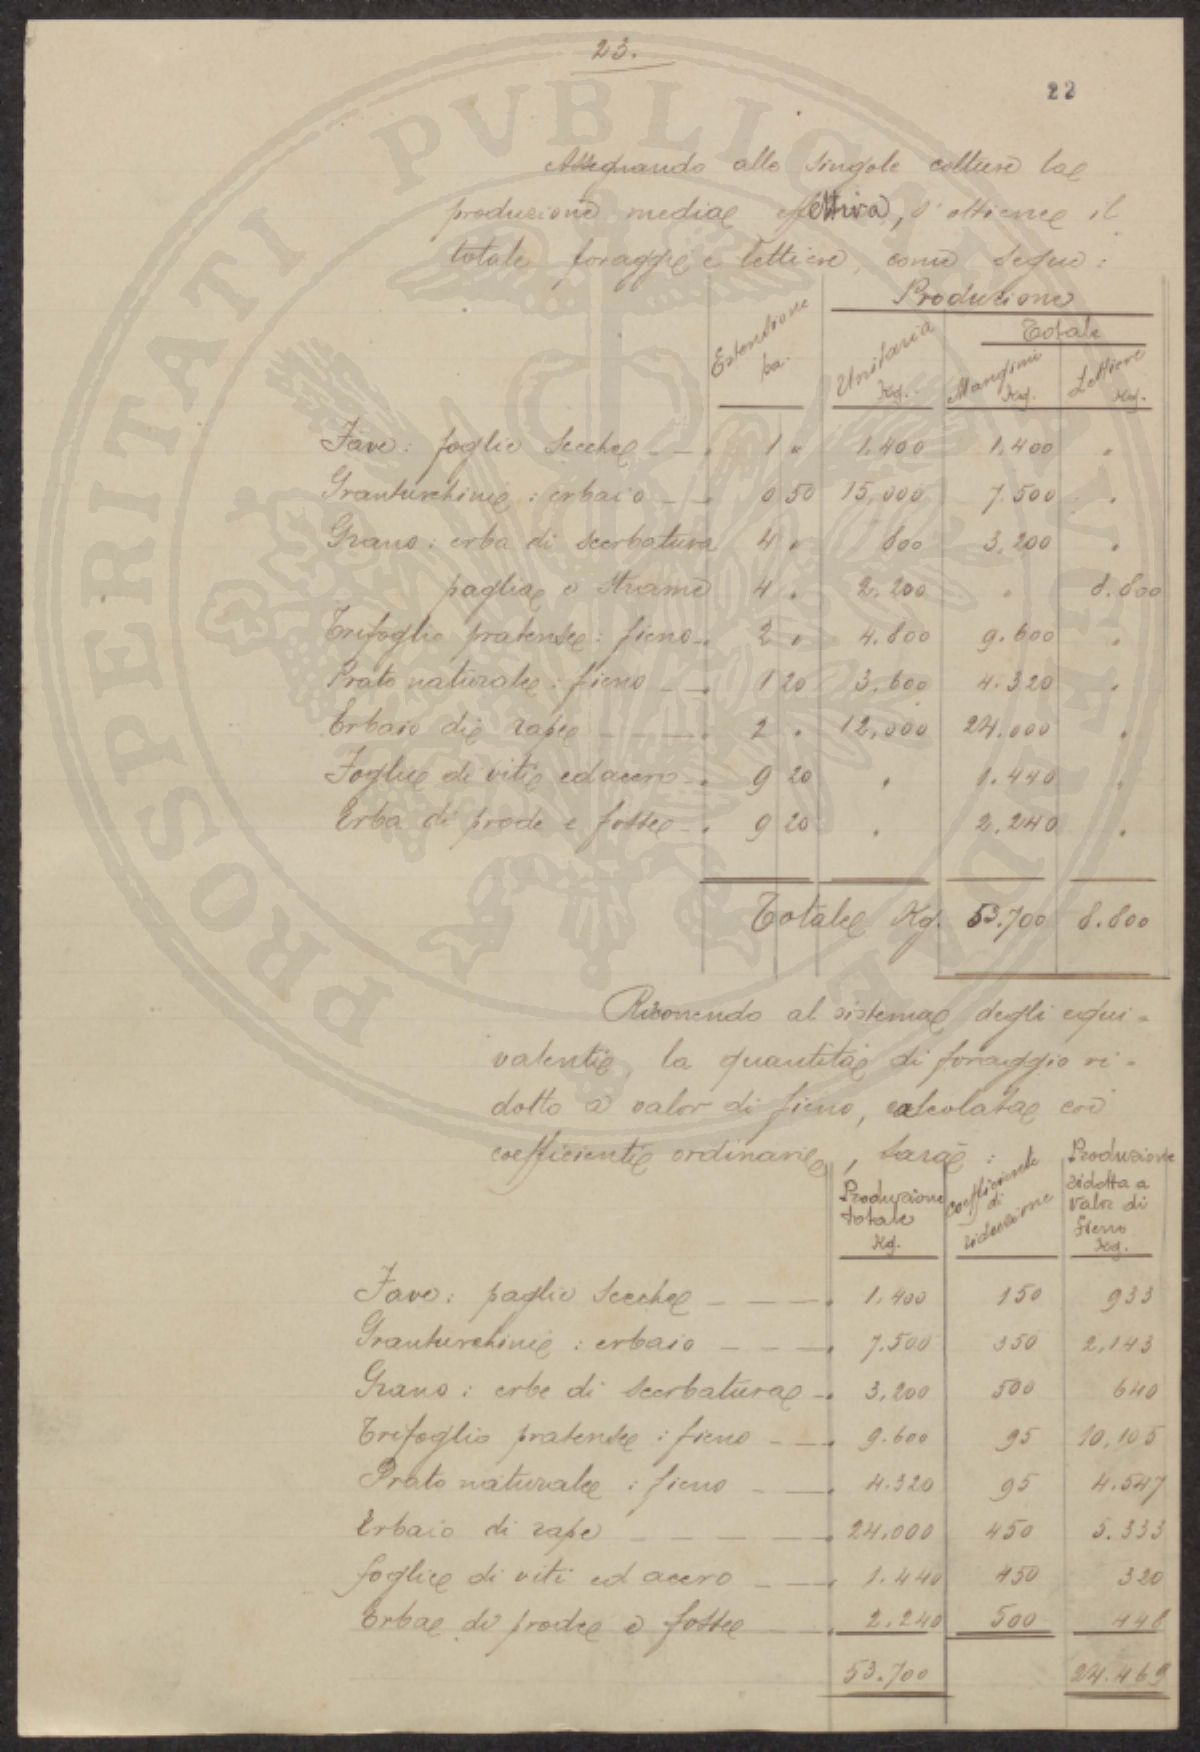 23.
22
Assegnando alle singole colture la
produzione media effettiva, s'ottiene il
totale foraggi e lettiere, come segue:
Estensione ha. Produzione
Unitaria Kg. Totale
Mangimi Kg. Lettiere Kg.
Fave: foglie secche — — . 1 " 1,400 1,400 "
Granturchino: erbaio — . 0 50 15,000 7.500 "
Grano: erba di scerbatura 4 " 800 3,200 "
paglia e strame 4 " 2,200 " 8.800
Trifoglio pratense: fieno — . 2 " 4.800 9.600 "
Prato naturale: fieno — . 1 20 3,600 4.320 "
Erbaio di rape — — — . 2 " 12,000 24.000 "
Foglie di viti ed acero — . 9 20 " 1.440 "
Erba di prode e fosse — . 9 20 " 2,240 "
Totale Kg. 53.700 8.800
Ricorrendo al sistema degli equi=
valenti, la quantità di foraggio ri=
dotto a valor di fieno, calcolata coi
coefficienti ordinari, sarà:
Produzione totale Kg. coefficiente di riduzione Produzione ridotta a valor di fieno Kg.
Fave: paglie secche — — — . 1,400 150 933
Granturchino: erbaio — — — . 7.500 350 2,143
Grano: erbe di scerbatura — . 3,200 500 640
Trifoglio pratense: fieno — — . 9.600 95 10,105
Prato naturale: fieno — — . 4.320 95 4.547
Erbaio di rape — — — — . 24,000 450 5.333
foglie di viti ed acero — — . 1.440 450 320
Erba di prode e fosse — — . 2.240 500 448
53.700 24.469
PROSPERITATI PUBLICAE AUGENDAE